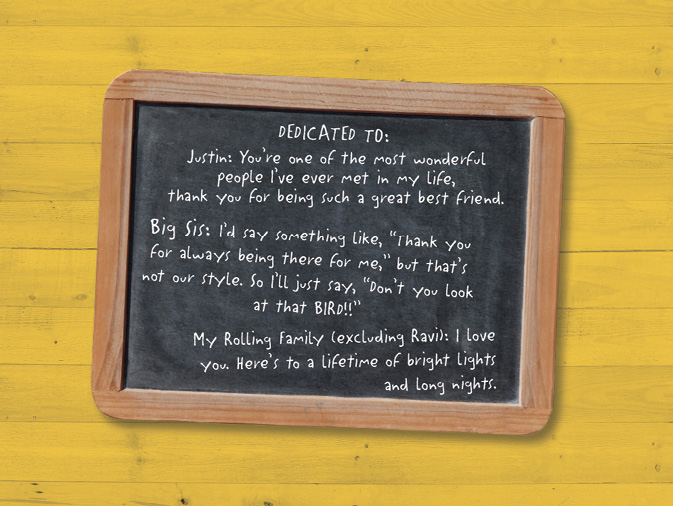 DEDICATED TO:
Justin: You're one of the most wonderful
people I've ever met in my life,
thank you for being such a great best friend.
Big Sis: I'd say something like, "Thank you
for always being there for me," but that's
not our style. So I'll just say, "Don't you look
at that BIRD!!"
My Rolling Family (excluding Ravi): I love
you. Here's to a lifetime of bright lights
and long nights.